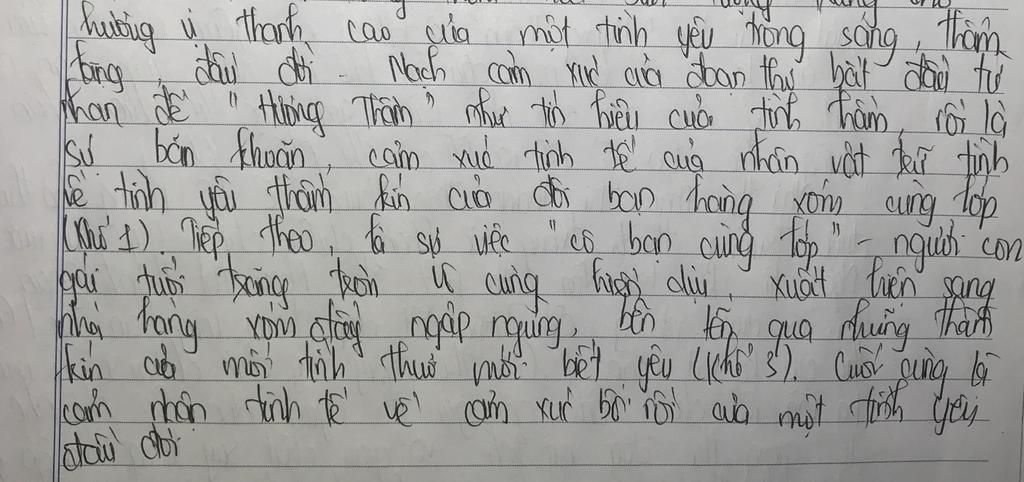 hương vị thanh cao của một tình yêu trong sáng, thầm
lặng, đầu đời. Mạch cảm xúc của đoạn thơ bắt đầu từ
nhan đề "Hương Thầm" như tín hiệu của tình thầm, rồi là
sự băn khoăn, cảm xúc tinh tế của nhân vật trữ tình
về tình yêu thầm kín của đôi bạn hàng xóm cùng lớp
(khổ 1). Tiếp theo, là sự việc "cô bạn cùng lớp" - người con
gái tuổi trăng tròn vô cùng hiền dịu, xuất hiện sang
nhà hàng xóm đầy ngập ngừng, bẽn lẽn qua những thầm
kín của mối tình thuở mới biết yêu (khổ 3). Cuối cùng là
cảm nhận tinh tế về cảm xúc bối rối của một tình yêu
đầu đời